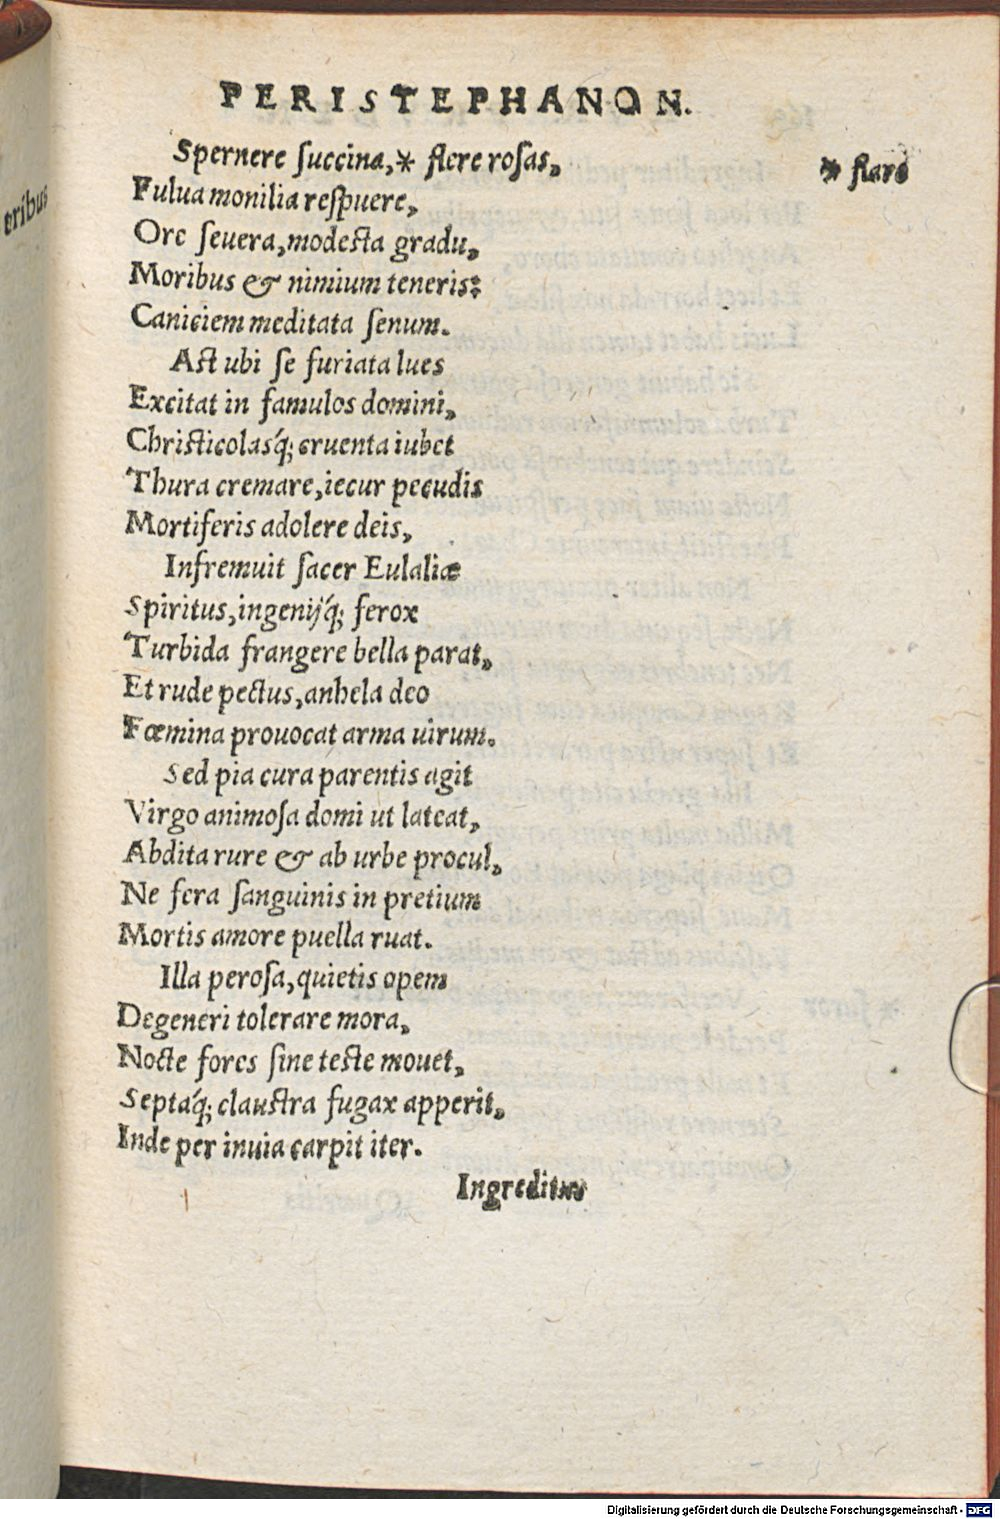 eribus
PERISTEPHANON.
Spernere ſuccina,* flere roſas,
* flare
Fulua monilia reſpuere,
Ore ſeuera, modeſta gradu,
Moribus & nimium teneris:
Caniciem meditata ſenum.
Aſt ubi ſe furiata lues
Excitat in famulos domini,
Chriſticolasq́; cruenta iubet
Thura cremare, iecur pecudis
Mortiferis adolere deis,
Infremuit ſacer Eulaliæ
Spiritus, ingenijq́; ferox
Turbida frangere bella parat,
Et rude pectus, anhela deo
Fœmina prouocat arma uirum.
Sed pia cura parentis agit
Virgo animoſa domi ut lateat,
Abdita rure & ab urbe procul,
Ne fera ſanguinis in pretium
Mortis amore puella ruat.
Illa peroſa, quietis opem
Degeneri tolerare mora,
Nocte fores ſine teſte mouet,
Septaq́; clauſtra fugax apperit,
Inde per inuia carpit iter.
Ingreditur
Digitalisierung gefördert durch die Deutsche Forschungsgemeinschaft - DFG